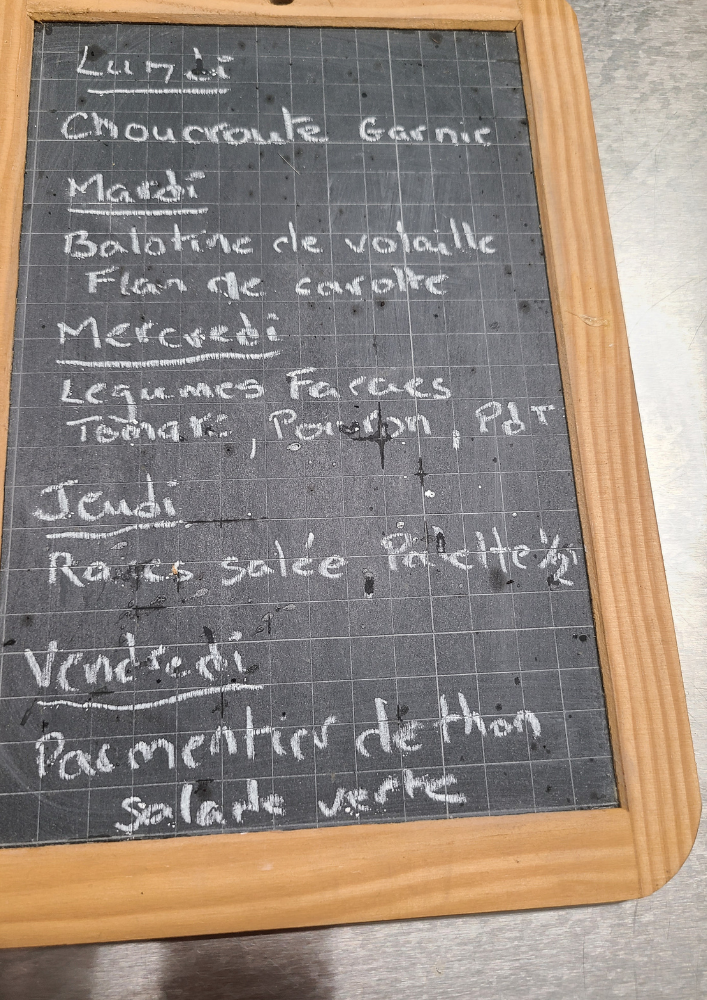 Lundi
Choucroute Garnie
Mardi
Balotine de volaille
Flan de carotte
Mercredi
Legumes Farcies
Tomate, Poivron, PdT
Jeudi
salée Palette 1/2
Vendredi
Parmentier de thon
Salade verte